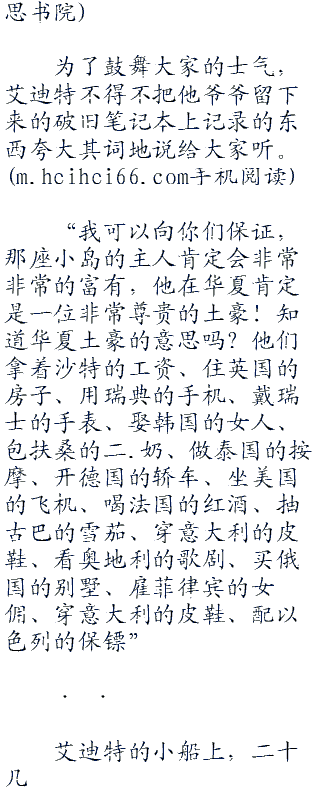 思书院)
为了鼓舞大家的士气，
艾迪特不得不把他爷爷留下
来的破旧笔记本上记录的东
西夸大其词地说给大家听。
(m.hcihci66.com手机阅读)
“我可以向你们保证，
那座小岛的主人肯定会非常
非常的富有，他在华夏肯定
是一位非常尊贵的土豪！知
道华夏土豪的意思吗？他们
拿着沙特的工资、住英国的
房子、用瑞典的手机、戴瑞
士的手表、娶韩国的女人、
包扶桑的二.奶、做泰国的按
摩、开德国的轿车、坐美国
的飞机、喝法国的红酒、抽
古巴的雪茄、穿意大利的皮
鞋、看奥地利的歌剧、买俄
国的别墅、雇菲律宾的女
佣、穿意大利的皮鞋、配以
色列的保镖”
． ．
艾迪特的小船上，二十
几